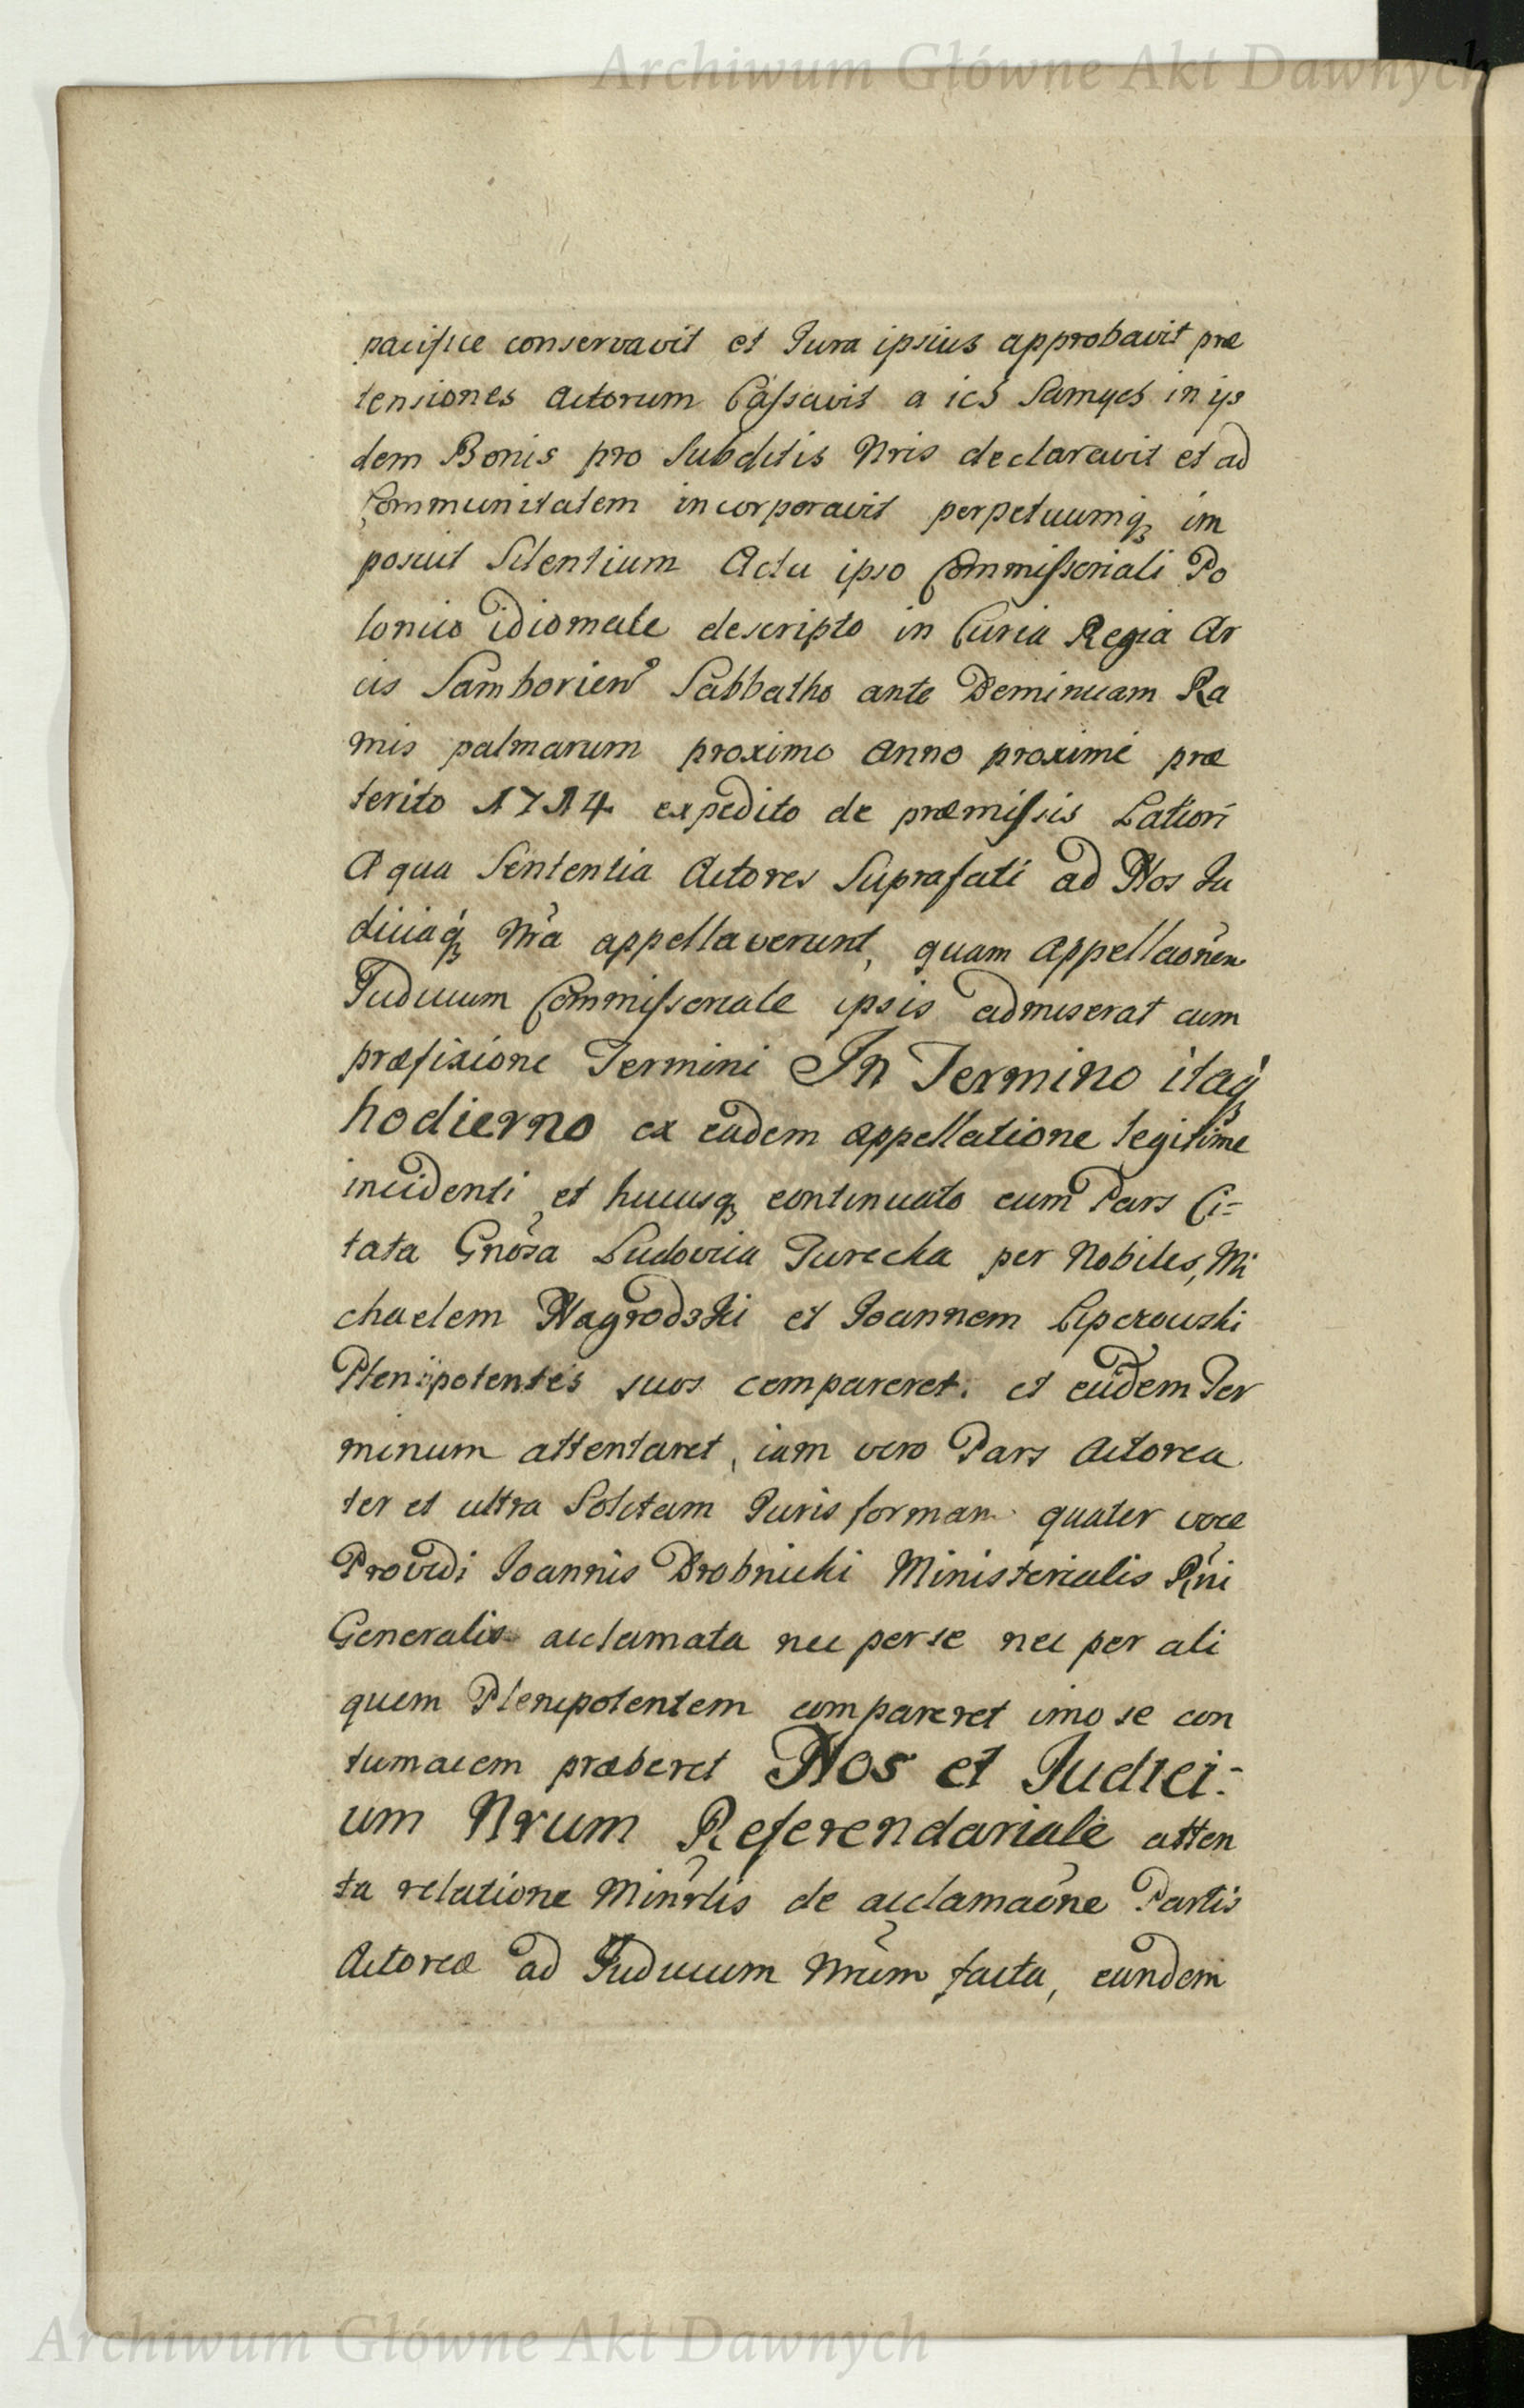 Archiwum Główne Akt Dawnych
pacifice conservavit et Jura ipsius approbavit præ
tensiones Actorum Cassavit a ich Samych in ijs
dem Bonis pro Subditis Nris declaravit et ad
Communitatem incorporavit perpetuumq im
posuit Silentium Actu ipso Commissoriali Po
lonico idiomate descripto in Curia Regia Ar
cis Samborien Sabbatho ante Dominicam Ra
mis palmarum proximo Anno proximé præ
terito 1714 expedito de præmissis Latiori
A qua Sententia Actores Suprafati ad Nos Ju
diciaq Nra appellaverunt, quam Appellaönem
Judicium Commissoriale ipsis admiserat cum
præfixione Termini In Termino itaq
hodierno ex eadem appellatione legitime
incidenti et hucusq continuato cum Pars Ci=
tata Gnosa Ludovica Turecka per Nobiles, Mi
chaelem Nagrodzki et Joannem Liperowski
Plenipotentes suos compareret. et eudem Ter
minum attentaret, iam vero Pars Actorea
ter et ultra Solitam Juris formam quater voce
Providi Joannis Drobnicki Ministerialis Rni
Generalis acclamata nec per se nec per ali
quem Plenipotentem compareret imo se con
tumacem præberet Nos et Judici=
um Nrum Referendariale atten
ta relatione Minrlis de acclamaone Partis
Actoreæ ad Judicium Nrum facta, eandem
Archiwum Główne Akt Dawnych